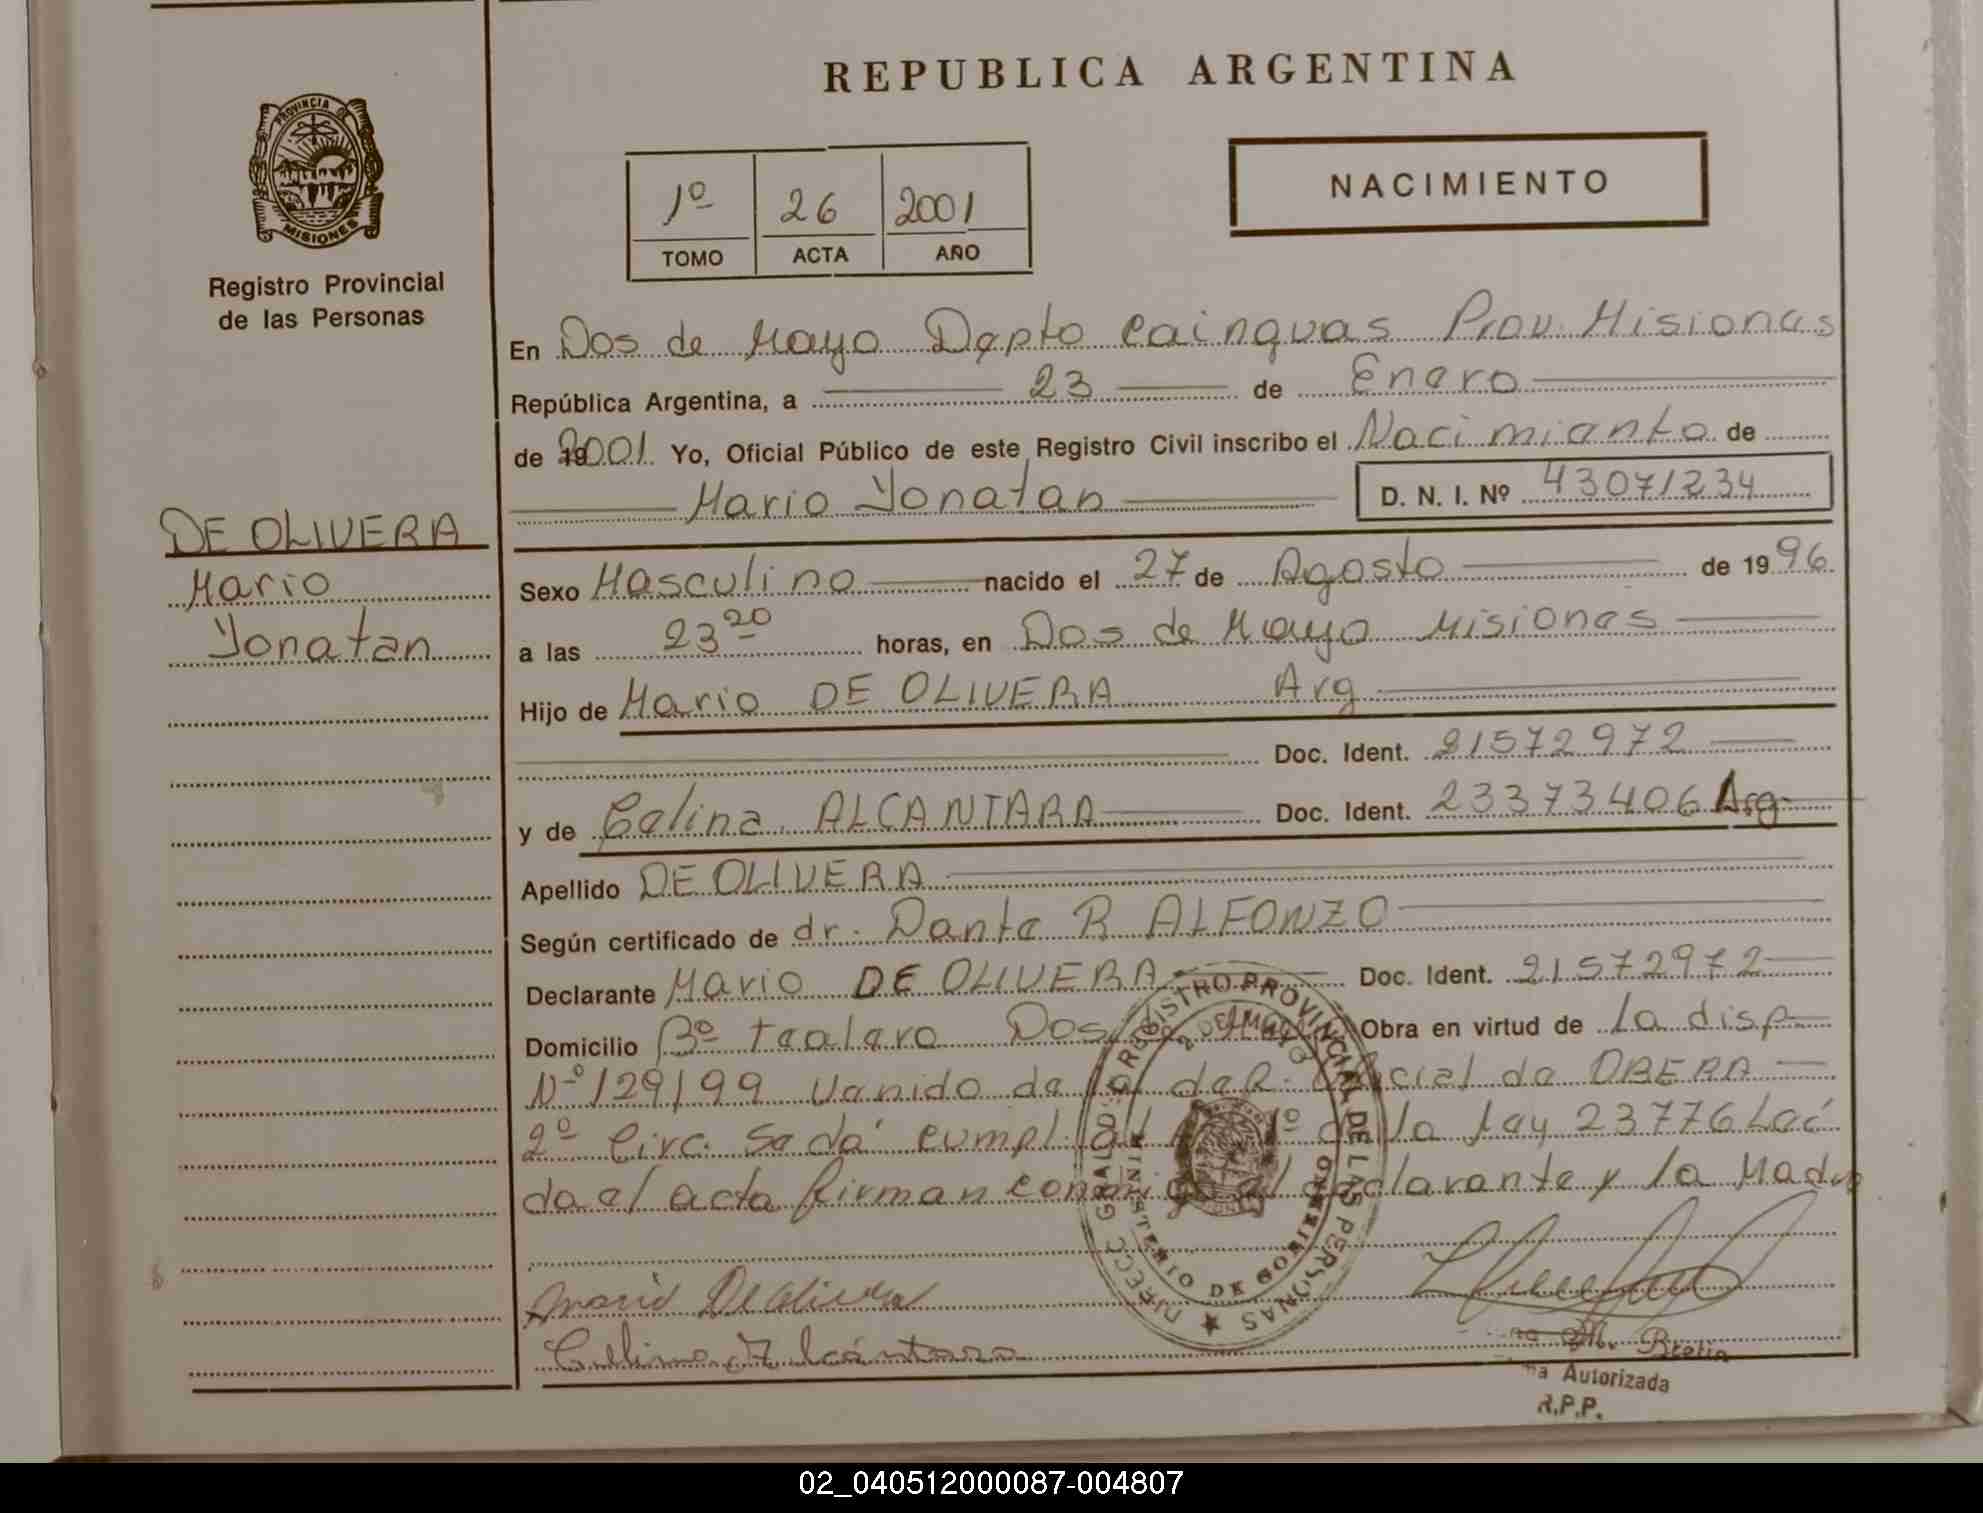 REPUBLICA ARGENTINA
PROVINCIA DE MISIONES
Registro Provincial
de las Personas
1º 26 2001
TOMO ACTA AÑO
NACIMIENTO
DE OLIVERA
Mario
Yonatan
En Dos de Mayo Depto Cainguas Prov. Misiones
República Argentina, a 23 de Enero
de 2001 Yo, Oficial Público de este Registro Civil inscribo el Nacimiento de
Mario Yonatan D. N. I. Nº 43071234
Sexo Masculino nacido el 27 de Agosto de 1996
a las 23 20 horas, en Dos de Mayo Misiones
Hijo de Mario DE OLIVERA Arg
Doc. Ident. 21572972
y de Celina ALCANTARA Doc. Ident. 23373406 Arg
Apellido DE OLIVERA
Según certificado de dr. Dante R ALFONZO
Declarante Mario DE OLIVERA Doc. Ident. 21572972
Domicilio Bº tealero Dos de Mayo Obra en virtud de la disp
Nº 129/99 venido de la del R. Oficial de OBERA
2º Circ. Se dá cumpl. al 1º de la ley 23776 Leí
da el acta firman conmigo el declarante y la Madre
REGISTRO PROVINCIAL DE LAS PERSONAS
2 DE MAYO
MINISTERIO DE GOBIERNO
Mario De Olivera
Celina Alcántara
M. Bretin
Autorizada
R.P.P.
02_040512000087-004807